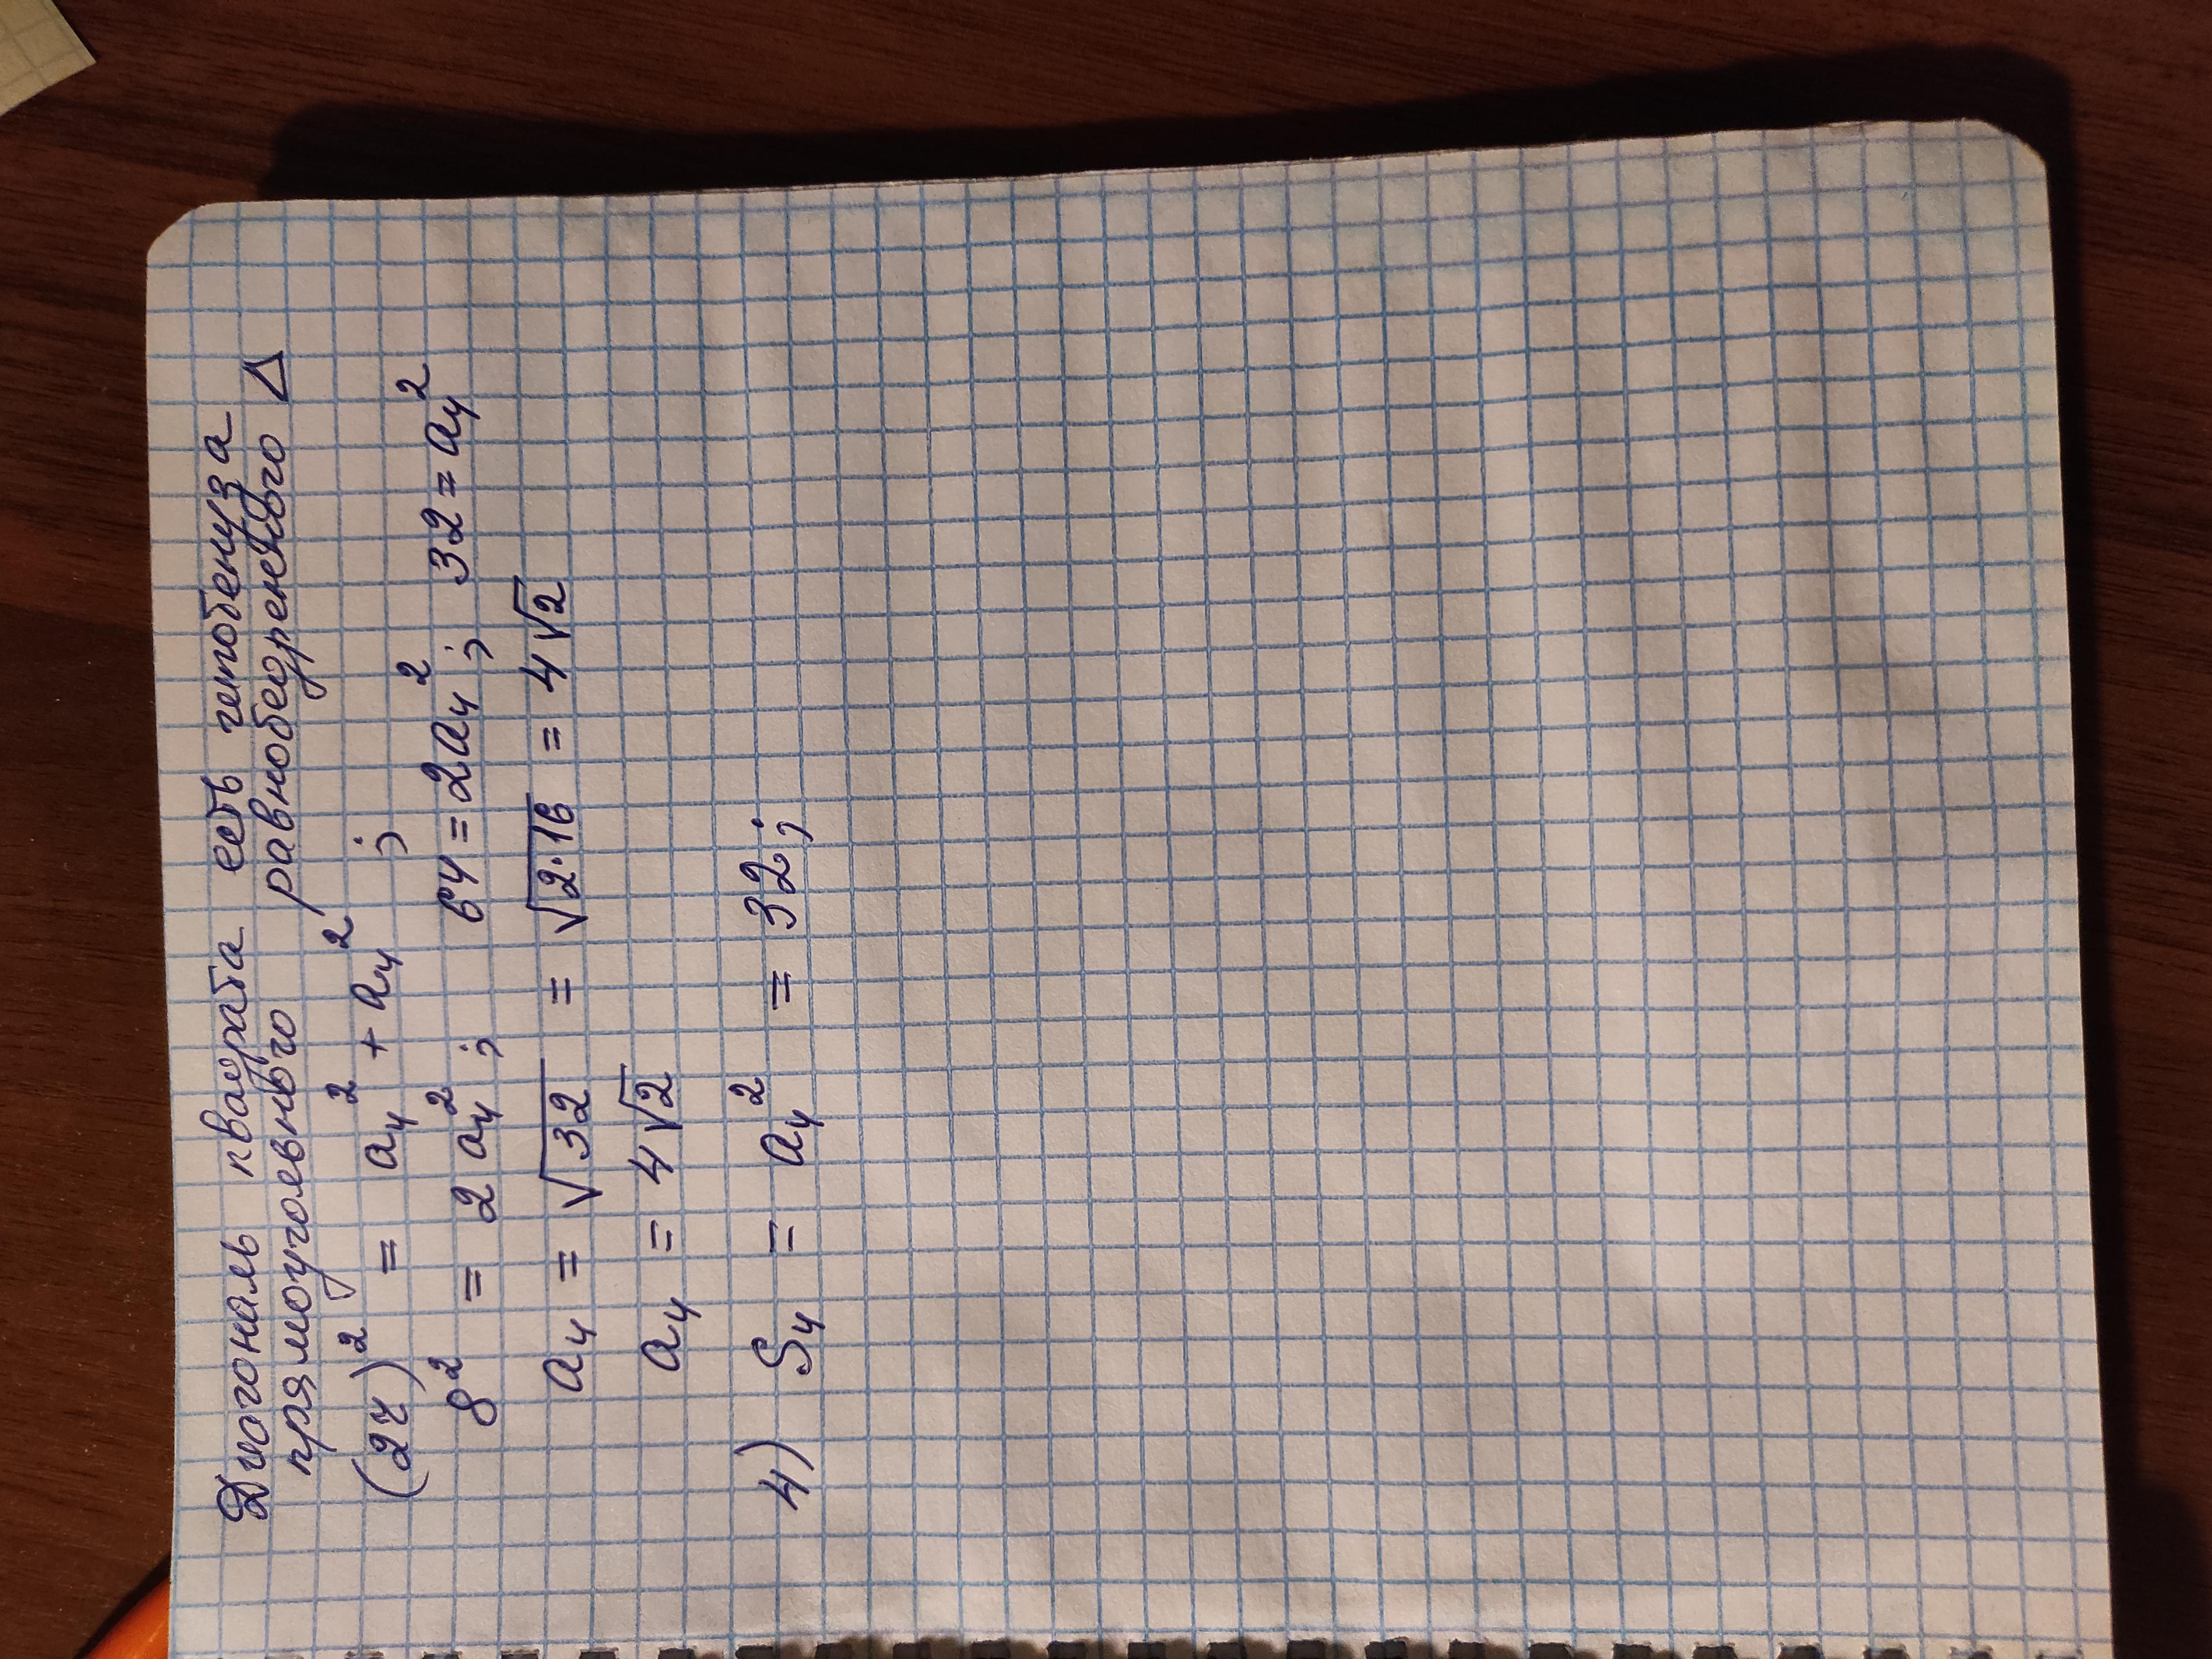 Диогональ квадрата есть гипобенуза
прямоугольного равнобедренного △
(2r)² = a₄² + a₄² ;
8² = 2 a₄² ; 64 = 2a₄² ; 32 = a₄²
a₄ = √32 = √2·16 = 4√2
a₄ = 4√2
4) S₄ = a₄² = 32 ;